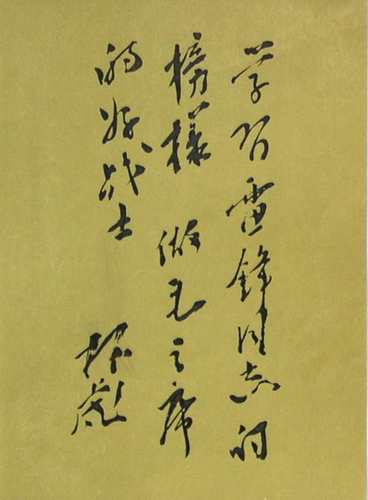 学习雷锋同志的
榜様 做毛主席
的好战士
林彪